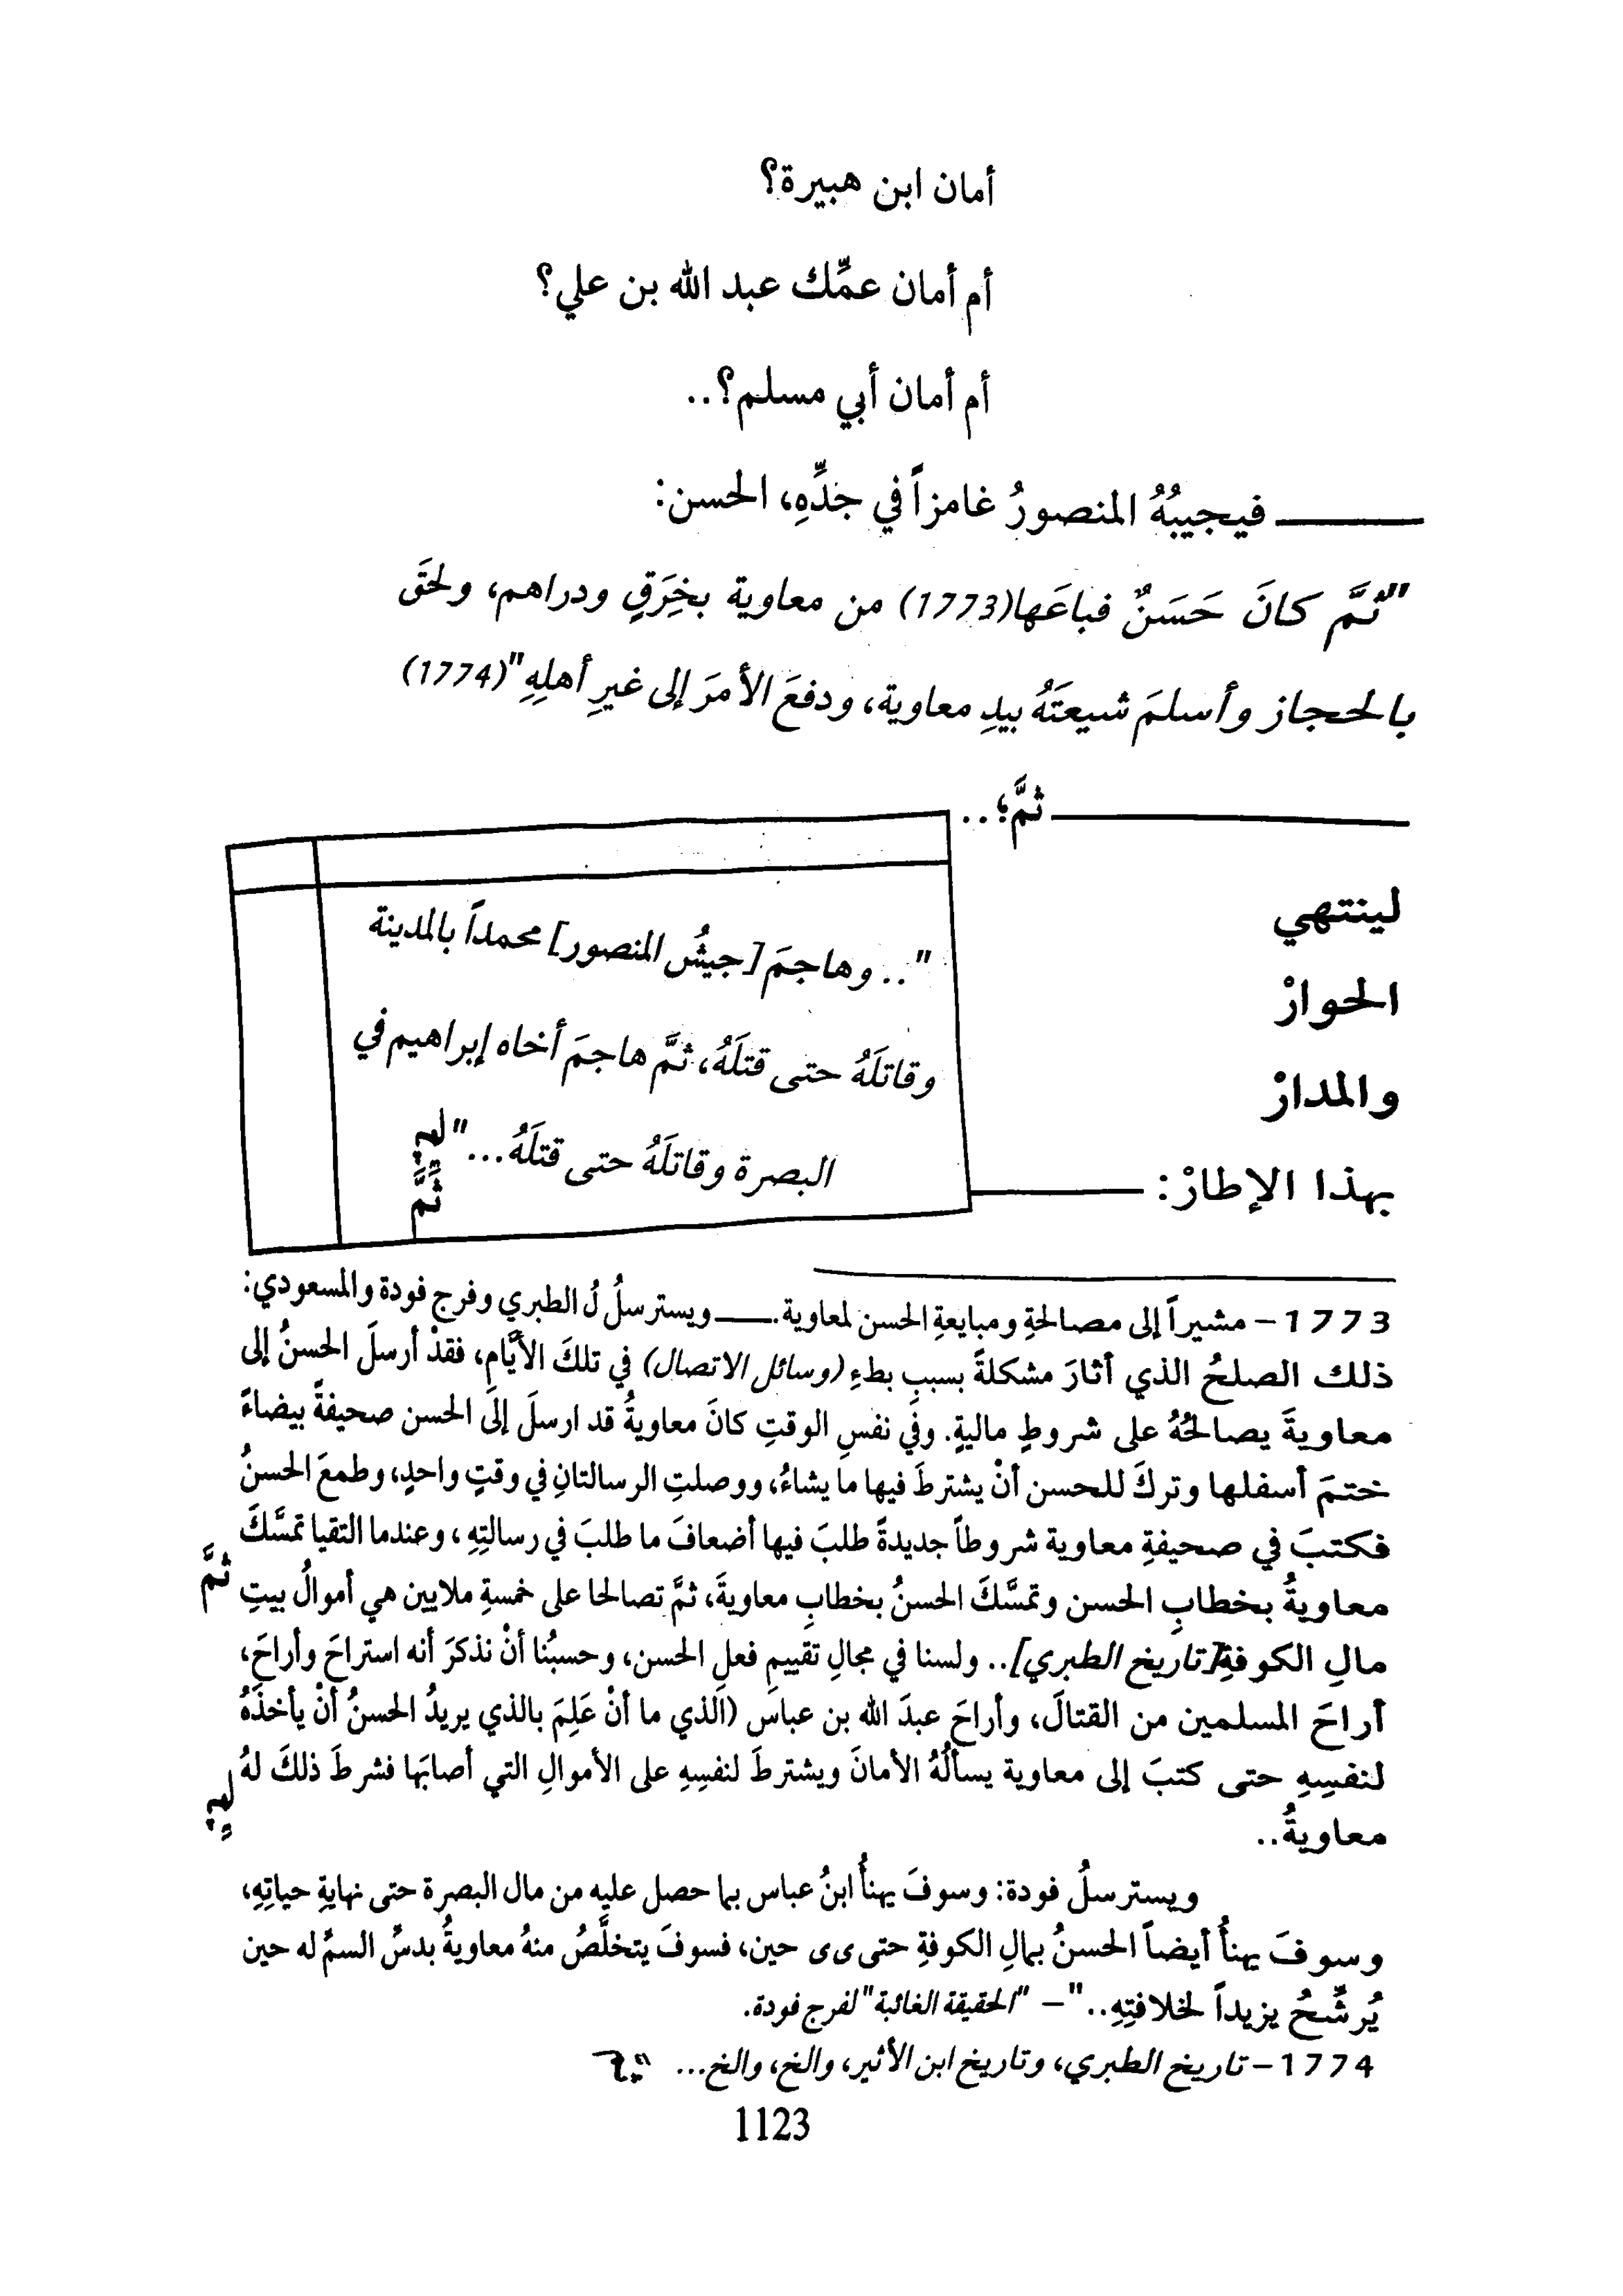 أمان ابن هبيرة؟
أم أمان عمِّك عبد الله بن علي؟
أم أمان أبي مسلم؟..
فيجيبُهُ المنصورُ غامزاً في جدِّهِ، الحسن:
"ثمَّ كانَ حَسَنٌ فباعَها(1773) من معاوية بخِرَقٍ ودراهم، ولحقَ
بالحجاز وأسلمَ شيعتَهُ بيدِ معاوية، ودفعَ الأمرَ إلى غيرِ أهلِهِ"(1774)
ثمَّ؛..
لينتهي
الحوارْ
والمدارْ
بهذا الإطارْ:
".. وهاجمَ [جيشُ المنصور] محمداً بالمدينة
وقاتلَهُ حتى قتلَهُ، ثمَّ هاجمَ أخاه إبراهيم في
البصرة وقاتلَهُ حتى قتلَهُ..."
ثمَّ
1773 – مشيراً إلى مصالحةِ ومبايعةِ الحسن لمعاوية. ويسترسلُ لُ الطبري وفرج فودة والمسعودي:
ذلك الصلحُ الذي أثارَ مشكلةً بسببِ بطءِ (وسائل الاتصال) في تلكَ الأيَّامِ، فقدْ أرسلَ الحسنُ إلى
معاويةَ يصالحُهُ على شروطٍ ماليةٍ. وفي نفسِ الوقتِ كانَ معاويةُ قد ارسلَ إلى الحسن صحيفةً بيضاءً
ختمَ أسفلها وتركَ للحسن أنْ يشترطَ فيها ما يشاءُ، ووصلتِ الرسالتانِ في وقتٍ واحدٍ، وطمعَ الحسنُ
فكتبَ في صحيفةِ معاوية شروطاً جديدةً طلبَ فيها أضعافَ ما طلبَ في رسالتِهِ، وعندما التقيا تمسَّكَ
معاويةُ بخطابِ الحسن وتمسَّكَ الحسنُ بخطابِ معاويةَ، ثمَّ تصالحا على خمسةِ ملايين هي أموالُ بيتِ
ثمَّ
مالِ الكوفةِ[تاريخ الطبري].. ولسنا في مجالِ تقييمِ فعلِ الحسن، وحسبُنا أنْ نذكرَ أنه استراحَ وأراحَ،
أراحَ المسلمين من القتالَ، وأراحَ عبدَ الله بن عباس (الذي ما أنْ عَلِمَ بالذي يريدُ الحسنُ أنْ يأخذَهُ
لنفسِهِ حتى كتبَ إلى معاوية يسألُهُ الأمانَ ويشترطَ لنفسِهِ على الأموالِ التي أصابَها فشرطَ ذلكَ لهُ
معاويةُ..
ويسترسلُ فودة: وسوفَ يهنأُ ابنُ عباس بما حصل عليه من مال البصرة حتى نهايةِ حياتِهِ،
وسوفَ يهنأُ أيضاً الحسنُ بمالِ الكوفةِ حتى ى حين، فسوفَ يتخلَّصُ منهُ معاويةُ بدسِّ السمِّ له حين
يُرشِّحُ يزيداً لخلافتِهِ.." – "الحقيقة الغائبة" لفرج فودة.
1774 – تاريخ الطبري، وتاريخ ابن الأثير، والخ، والخ...
1123